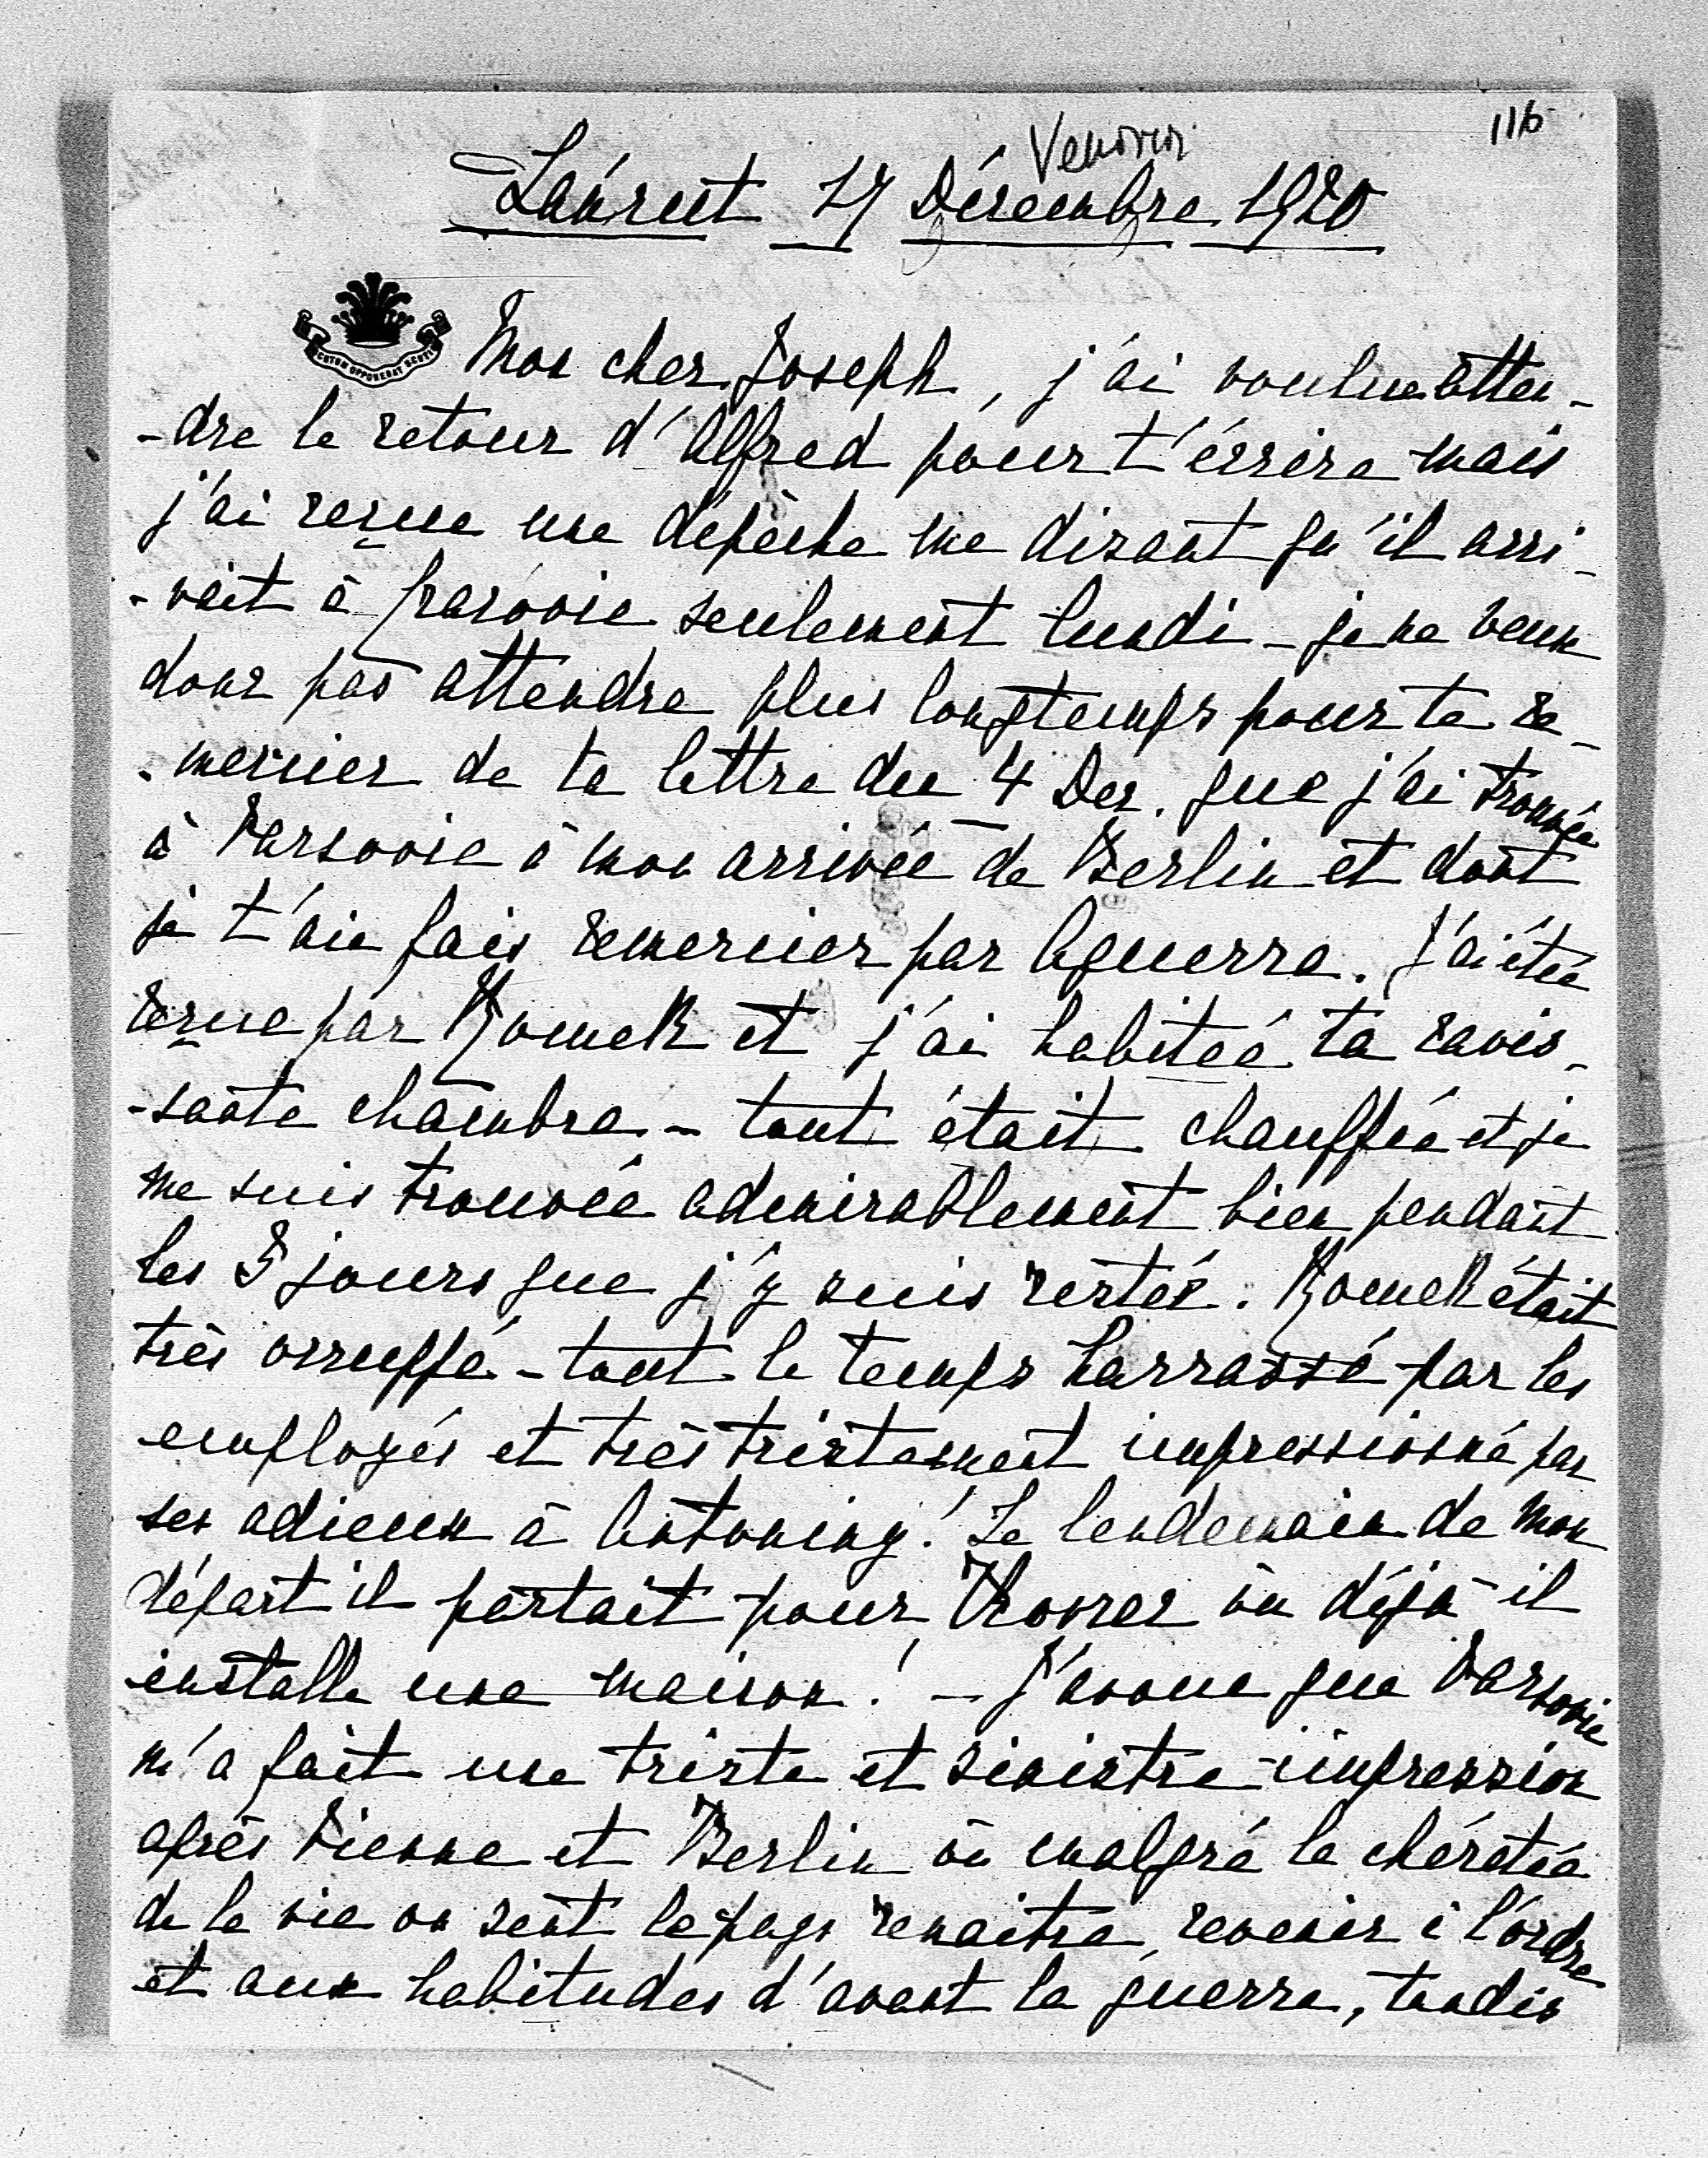 116
Vendredi
Łańcut 17 Décembre 1920
SCUTUM OPPONEBAT SCUTIS
Mon cher Joseph, j'ai voulue atten-
-dre le retour d'Alfred pour t'écrire mais
j'ai reçue une dépêche me disant qu'il arri-
-vait à Cracovie seulement lundi – je ne veux
donc pas attendre plus longtemps pour te re-
-mercier de ta lettre du 4 Dec. que j'ai trouvée
à Varsovie à mon arrivée de Berlin et dont
je t'aie fais remercier par Aguerra. J'ai étée
reçue par Romek et j'ai habitée ta ravis-
-sante chambre – tout était chauffée et je
me suis trouvée admirablement bien pendant
les 5 jours que j'y suis restée. Romek était
très occuppé – tout le temps harrassé par les
employés et très tristement impressionné par
ses adieux à Antoniny! Le lendemain de mon
départ il partait pour où déjà il
installe une maison! – J'avoue que Varsovie
m'a fait une triste et sinistre impression
après Vienne et Berlin où malgré la chèretée
de la vie on sent le pays renaitre, revenir à l'ordre
et aux habitudes d'avant la guerre, tandis